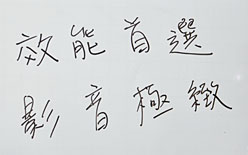 效能首選
影音極緻